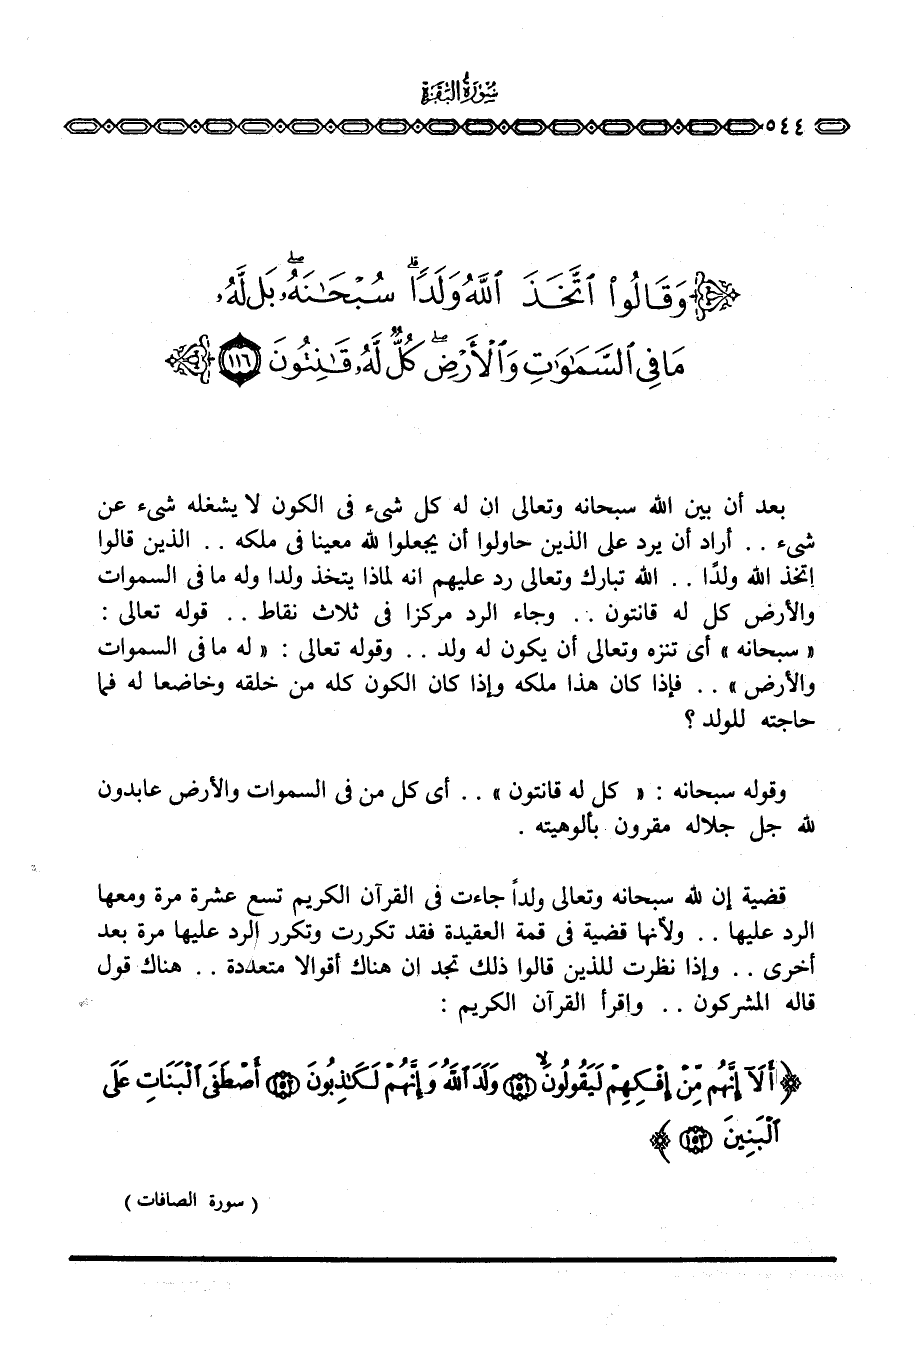 سُورَةُ البَقَرَة
٥٤٤
وَقَالُوا۟ ٱتَّخَذَ ٱللَّهُ وَلَدًا ۗ سُبْحَـٰنَهُۥ ۖ بَل لَّهُۥ
مَا فِى ٱلسَّمَـٰوَٰتِ وَٱلْأَرْضِ ۖ كُلٌّ لَّهُۥ قَـٰنِتُونَ ١١٦
بعد أن بين الله سبحانه وتعالى ان له كل شىء فى الكون لا يشغله شىء عن
شىء . . أراد أن يرد على الذين حاولوا أن يجعلوا لله معينا فى ملكه . . الذين قالوا
إتخذ الله ولدًا . . الله تبارك وتعالى رد عليهم انه لماذا يتخذ ولدا وله ما فى السموات
والأرض كل له قانتون . . وجاء الرد مركزا فى ثلاث نقاط . . قوله تعالى :
« سبحانه » أى تنزه وتعالى أن يكون له ولد . . وقوله تعالى : « له ما فى السموات
والأرض » . . فإذا كان هذا ملكه وإذا كان الكون كله من خلقه وخاضعا له فما
حاجته للولد ؟
وقوله سبحانه : « كل له قانتون » . . أى كل من فى السموات والأرض عابدون
لله جل جلاله مقرون بألوهيته .
قضية إن لله سبحانه وتعالى ولداً جاءت فى القرآن الكريم تسع عشرة مرة ومعها
الرد عليها . . ولأنها قضية فى قمة العقيدة فقد تكررت وتكرر الرد عليها مرة بعد
أخرى . . وإذا نظرت للذين قالوا ذلك تجد ان هناك أقوالا متعددة . . هناك قول
قاله المشركون . . واقرأ القرآن الكريم :
﴿ أَلَآ إِنَّهُم مِّنْ إِفْكِهِمْ لَيَقُولُونَ ۙ ١٥١ وَلَدَ ٱللَّهُ وَإِنَّهُمْ لَكَـٰذِبُونَ ١٥٢ أَصْطَفَى ٱلْبَنَاتِ عَلَى
ٱلْبَنِينَ ١٥٣ ﴾
( سورة الصافات )